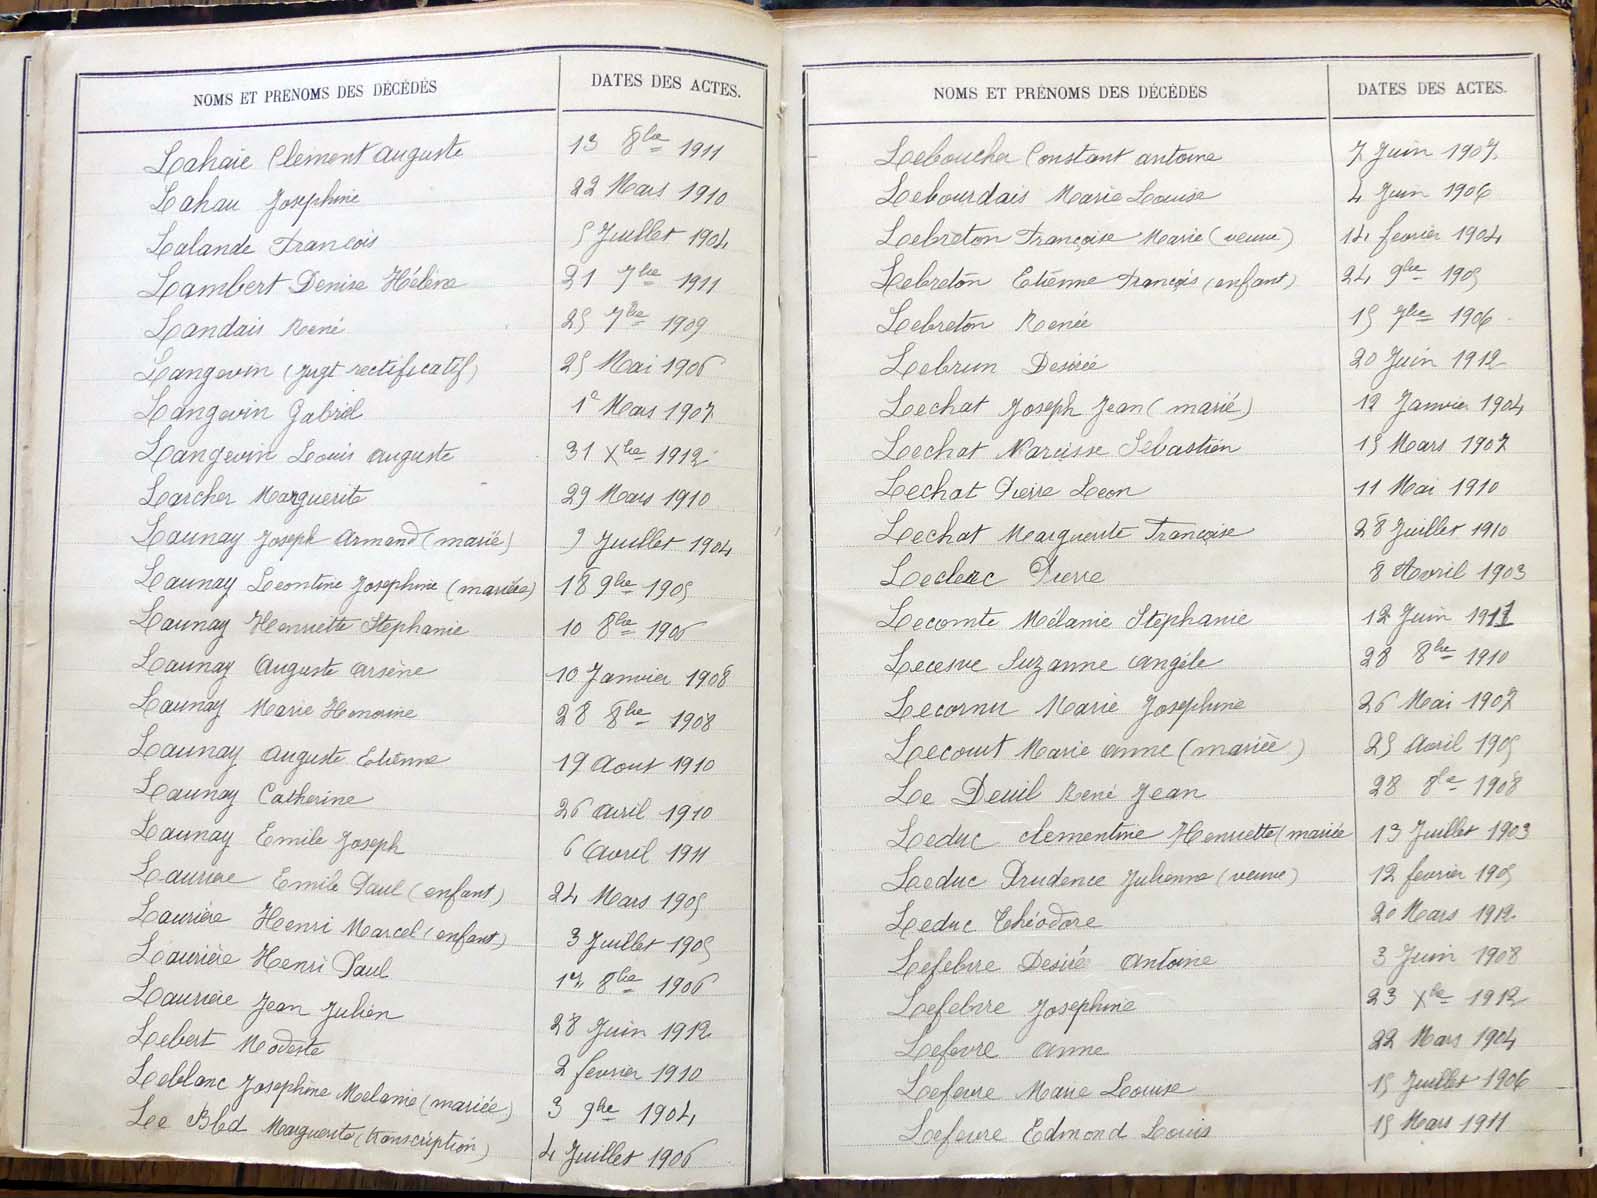 NOMS ET PRENOMS DES DÉCÉDÉS DATES DES ACTES.
Lahaie Clément Auguste 13 8bre 1911
Lahau Josephine 22 Mars 1910
Lalande François 5 Juillet 1904
Lambert Denise Hélène 21 7bre 1911
Landais René 25 7bre 1909
Langevin (Jugt rectificatif) 25 Mai 1906
Langevin Gabriel 1e Mars 1907
Langevin Louis Auguste 31 Xbre 1912
Larcher Marguerite 29 Mars 1910
Launay Joseph Armand (marié) 9 Juillet 1904
Launay Leontine Josephine (mariée) 18 9bre 1905
Launay Henriette Stephanie 10 8bre 1906
Launay Auguste Arsène 10 Janvier 1908
Launay Marie Honorine 28 8bre 1908
Launay Auguste Etienne 19 Aout 1910
Launay Catherine 26 Avril 1910
Launay Emile Joseph 6 Avril 1911
Laurière Emile Paul (enfant) 24 Mars 1905
Laurière Henri Marcel (enfant) 3 Juillet 1905
Laurière Henri Paul 1er 8bre 1906
Laurière Jean Julien 28 Juin 1912
Lebert Modeste 2 fevrier 1910
Leblanc Josephine Melanie (mariée) 3 9bre 1904
Le Bled Marguerite (transcription) 4 Juillet 1906
NOMS ET PRÉNOMS DES DÉCÉDÉS DATES DES ACTES.
Leboucher Constant Antoine 7 Juin 1907
Lebourdais Marie Louise 4 Juin 1906
Lebreton Françoise Marie (veuve) 14 fevrier 1904
Lebreton Etienne François (enfant) 24 9bre 1905
Lebreton Renée 15 7bre 1906
Lebrun Desirée 20 Juin 1912
Lechat Joseph Jean (marié) 12 Janvier 1904
Lechat Narcisse Sebastien 15 Mars 1907
Lechat Pierre Leon 11 Mai 1910
Lechat Marguerite Françoise 28 Juillet 1910
Leclerc Pierre 8 Avril 1903
Lecomte Mélanie Stéphanie 12 Juin 1911
Lecesve Suzanne Angèle 28 8bre 1910
Lecornu Marie Josephine 26 Mai 1907
Lecourt Marie Anne (mariée) 25 Avril 1905
Le Deuil René Jean 28 8bre 1908
Leduc Clementine Henriette (mariée 13 Juillet 1903
Leduc Prudence Julienne (veuve) 12 fevrier 1905
Leduc Théodore 20 Mars 1912
Lefebvre Desiré Antoine 3 Juin 1908
Lefebvre Josephine 23 Xbre 1912
Lefevre Anne 22 Mars 1904
Lefevre Marie Louise 15 Juillet 1906
Lefevre Edmond Louis 15 Mars 1911